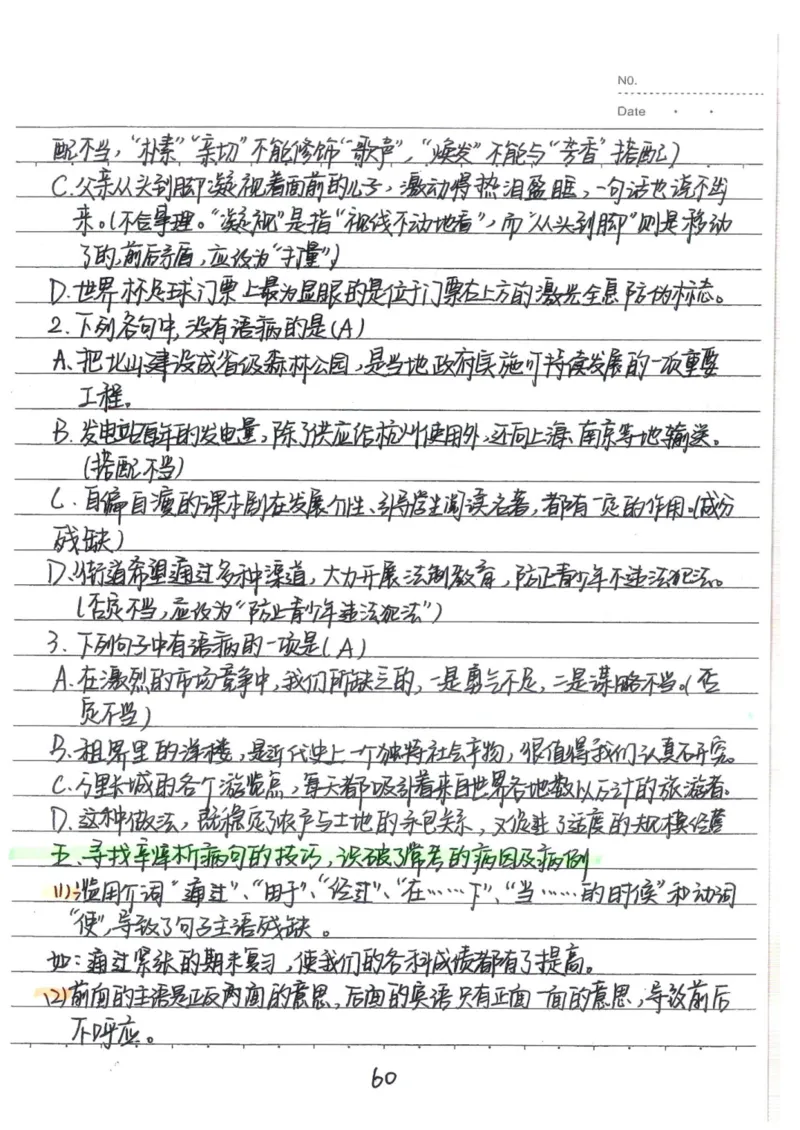 NO.
Date
配不当,“朴素”“亲切”不能修饰“歌声”,“焕发”不能与“芳香”搭配)
C.父亲从头到脚凝视着面前的儿子,激动得热泪盈眶,一句话也说不出
来。(不合事理。“凝视”是指“视线不动地看”,而“从头到脚”则是移动
了的,前后矛盾,应改为“打量”)
D.世界杯足球门票上最为显眼的是位于门票右上方的激光全息防伪标志。
2.下列各句中,没有语病的是(A)
A.把北山建设成省级森林公园,是当地政府实施可持续发展的一项重要
工程。
B.发电站每年的发电量,除了供应给杭州使用外,还向上海、南京等地输送。
(搭配不当)
C.自编自演的课本剧在发展个性、引导学生阅读名著,都有一定的作用。(成分
残缺)
D.街道希望通过多种渠道,大力开展法制教育,防止青少年不违法犯法。
(否定不当,应改为“防止青少年违法犯法”)
3.下列句子中有语病的一项是(A)
A.在激烈的市场竞争中,我们所缺乏的,一是勇气不足,二是谋略不当。(否
定不当)
B.租界里的洋楼,是近代史上一个独特社会产物,很值得我们认真研究。
C.万里长城的各个游览点,每天都吸引着来自世界各地数以万计的旅游者。
D.这种做法,既稳定了农户与土地的承包关系,又促进了适度的规模经营
五、寻找辛辨析病句的技巧,识破了常考的病因及病例
(1)滥用介词“通过”、“由于”、“经过”、“在……下”、“当……的时候”和动词
“使”,导致了句子主语残缺。
如:通过紧张的期末复习,使我们的各科成绩都有了提高。
(2)前面的主语是正反两面的意思,后面的宾语只有正面一面的意思,导致前后
不呼应。
60